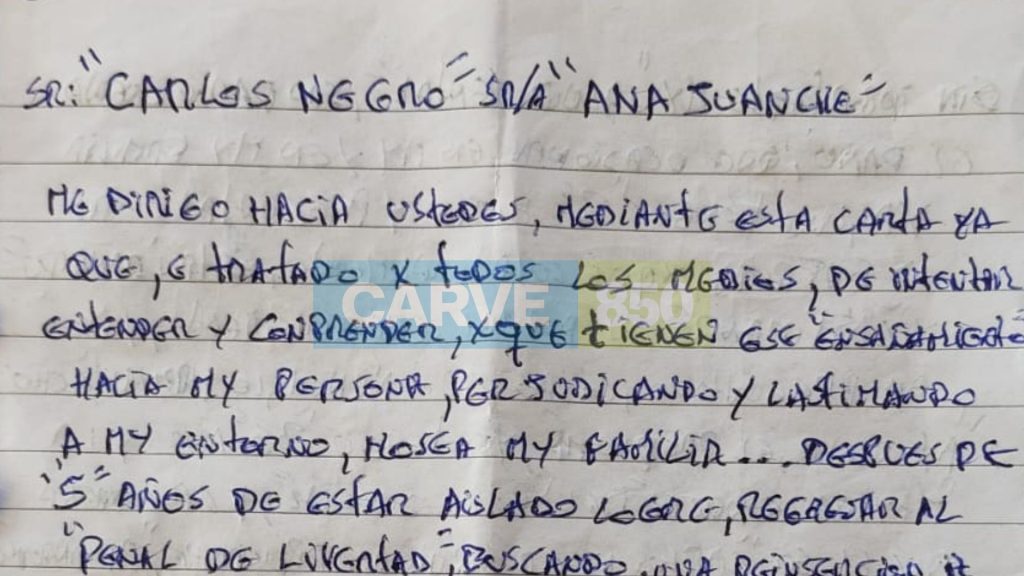 SR: "CARLOS NEGRO" SR/A "ANA JUANCHE"
ME DIRIGO HACIA USTEDES, MEDIANTE ESTA CARTA YA
QUE, E TRATADO X TODOS LOS MEDIOS, DE INTENTAR
ENTENDER Y CONPRENDER, XQUE TIENEN ESE "ENSAÑAMIENTO
HACIA MY PERSONA, PERJUDICANDO Y LASTIMANDO
A MY ENTORNO, HOSEA MY FAMILIA... DESPUES DE
"5" AÑOS DE ESTAR AISLADO LOGRE, REGRESAR AL
"PENAL DE LIVERTAD", BUSCANDO, UNA REINSERCION
CARVE 850